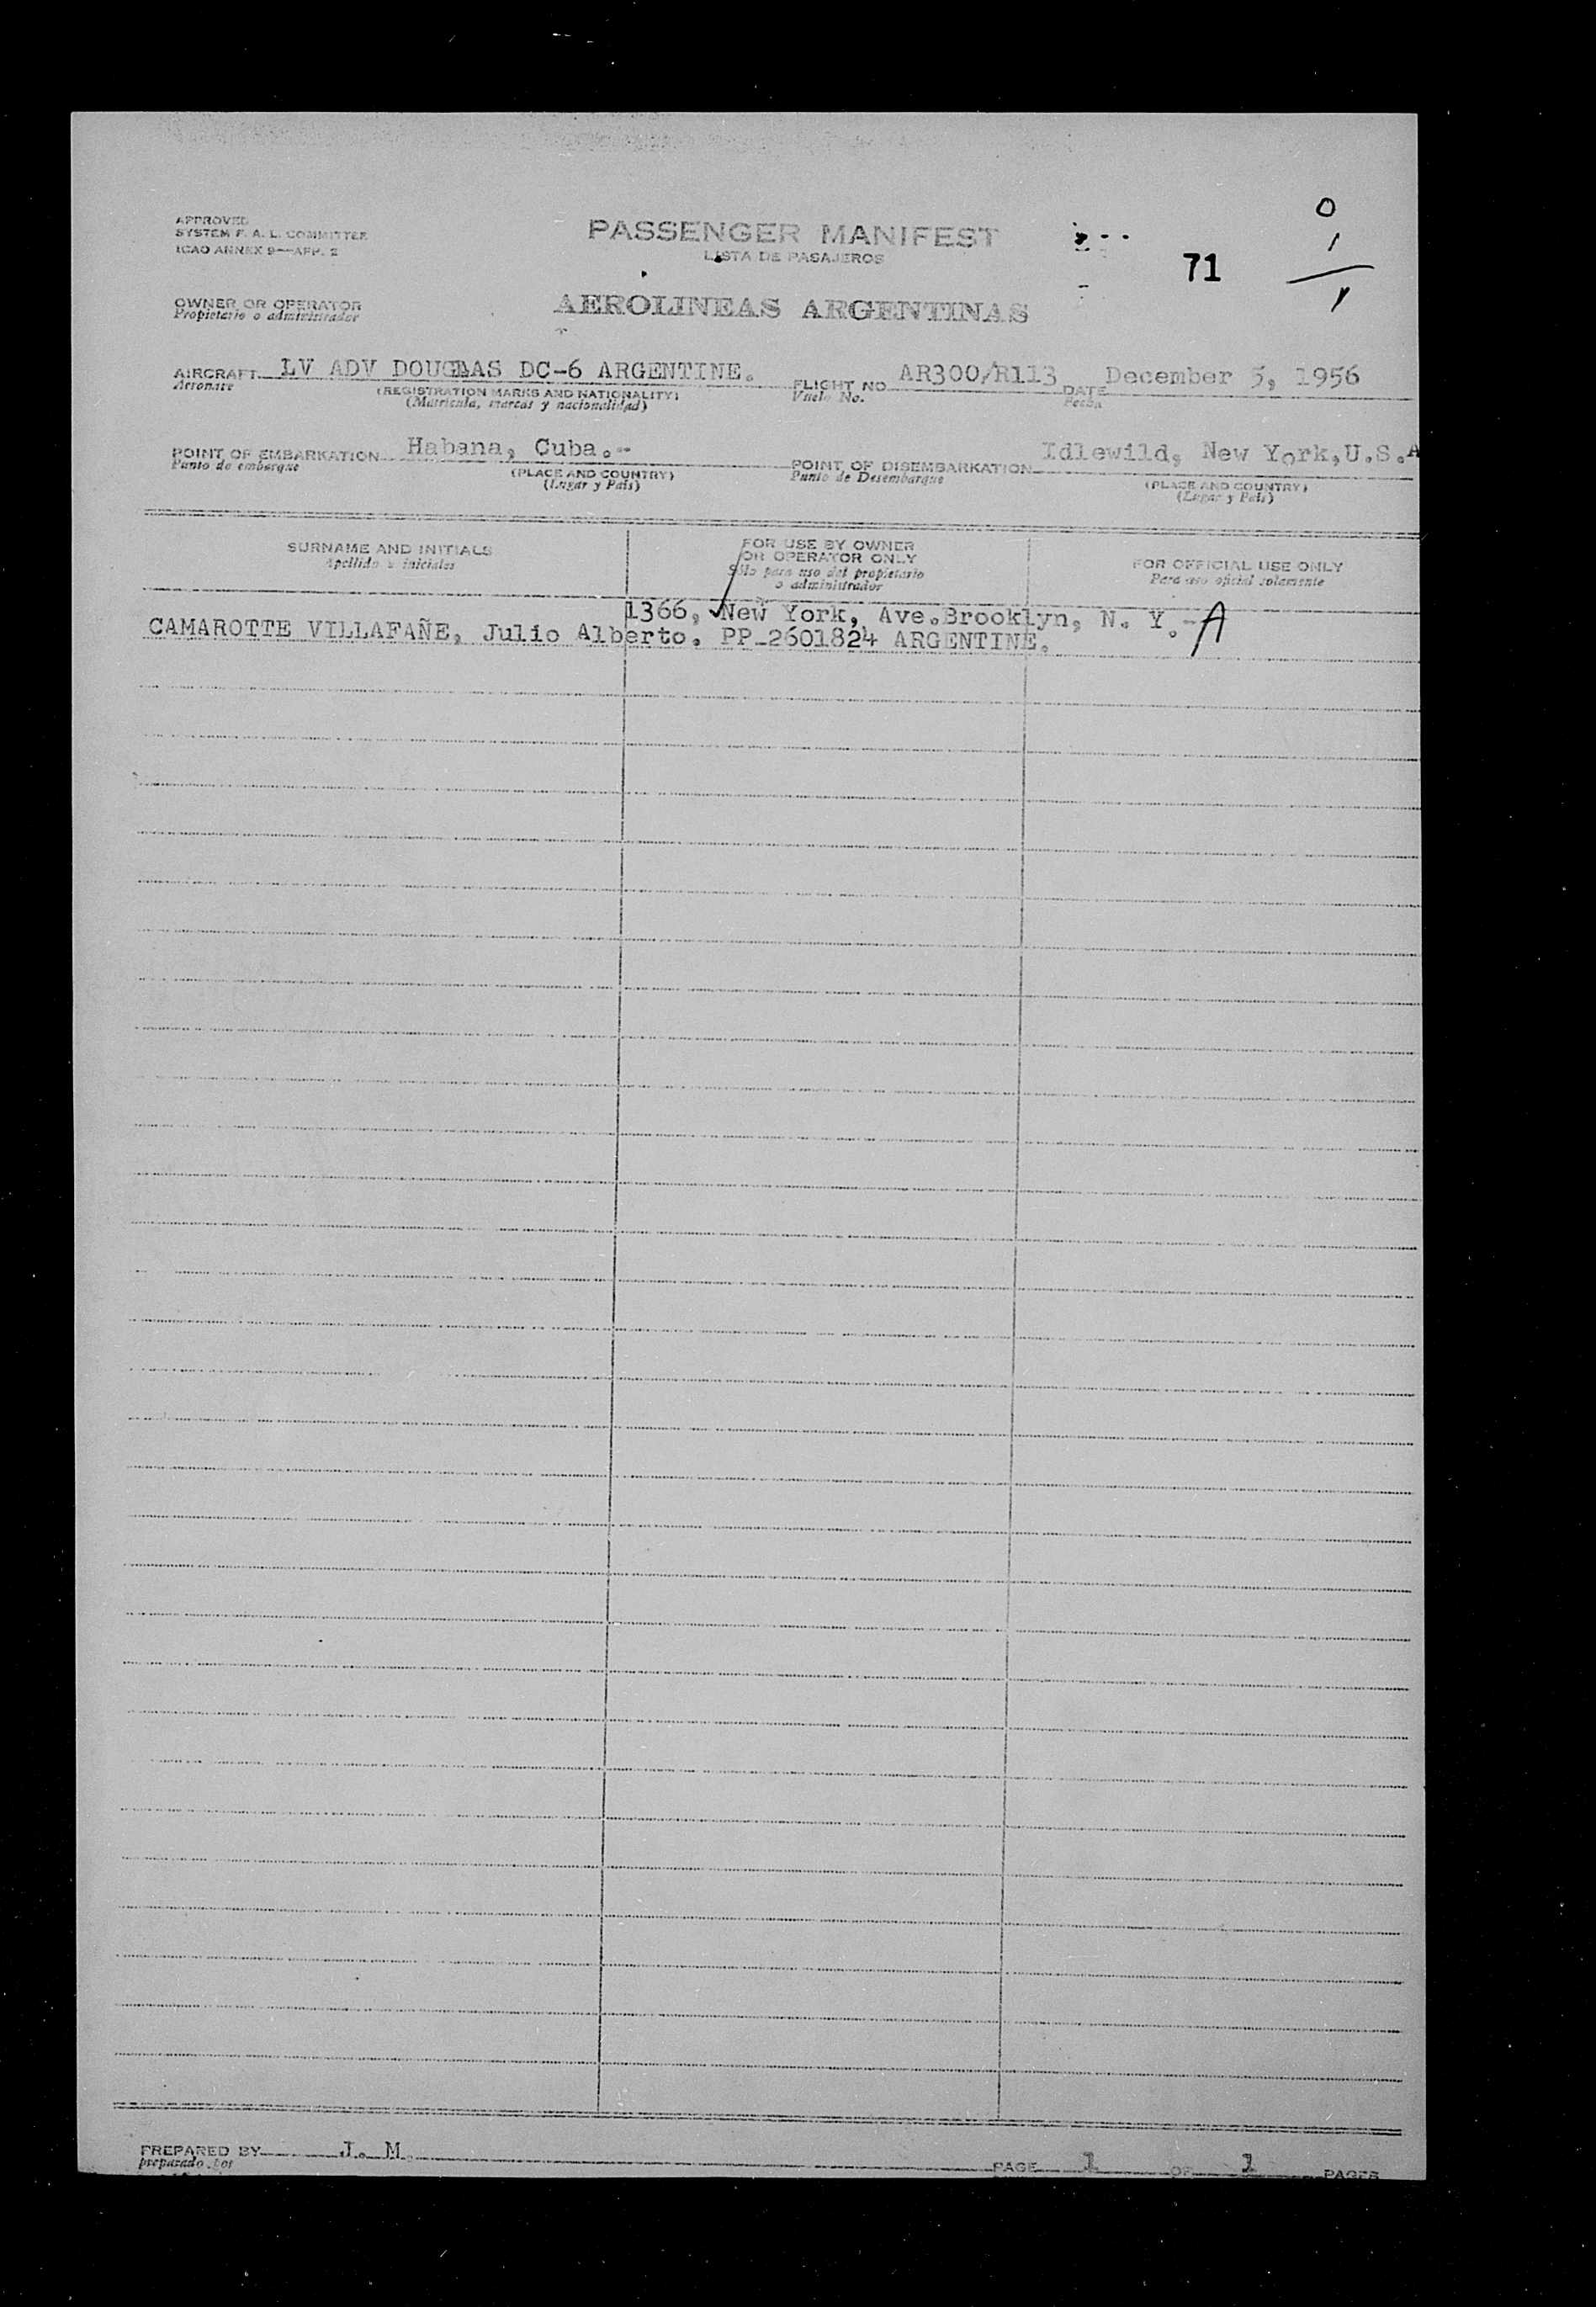 APPROVED
SYSTEM F. A. L. COMMITTEE
ICAO ANNEX 9—APP. 2
PASSENGER MANIFEST
LISTA DE PASAJEROS
71
0
1
1
OWNER OR OPERATOR
Propietario o administrador
AEROLINEAS ARGENTINAS
AIRCRAFT LV ADV DOUGLAS DC-6 ARGENTINE. FLIGHT NO. AR300/R113 DATE December 5, 1956
Aeronave (REGISTRATION MARKS AND NATIONALITY) Vuelo No. Fecha
(Matrícula, marcas y nacionalidad)
POINT OF EMBARKATION Habana, Cuba.-- POINT OF DISEMBARKATION Idlewild, New York,U.S.A
Punto de embarque (PLACE AND COUNTRY) Punto de Desembarque (PLACE AND COUNTRY)
(Lugar y País) (Lugar y País)
SURNAME AND INITIALS
Apellido e iniciales
FOR USE BY OWNER
OR OPERATOR ONLY
Sólo para uso del propietario
o administrador
FOR OFFICIAL USE ONLY
Para uso oficial solamente
1366, New York, Ave.Brooklyn, N. Y.- A
CAMAROTTE VILLAFAÑE, Julio Alberto. PP-2601824 ARGENTINE.
PREPARED BY J. M.
preparado por
PAGE 1 OF 1 PAGES